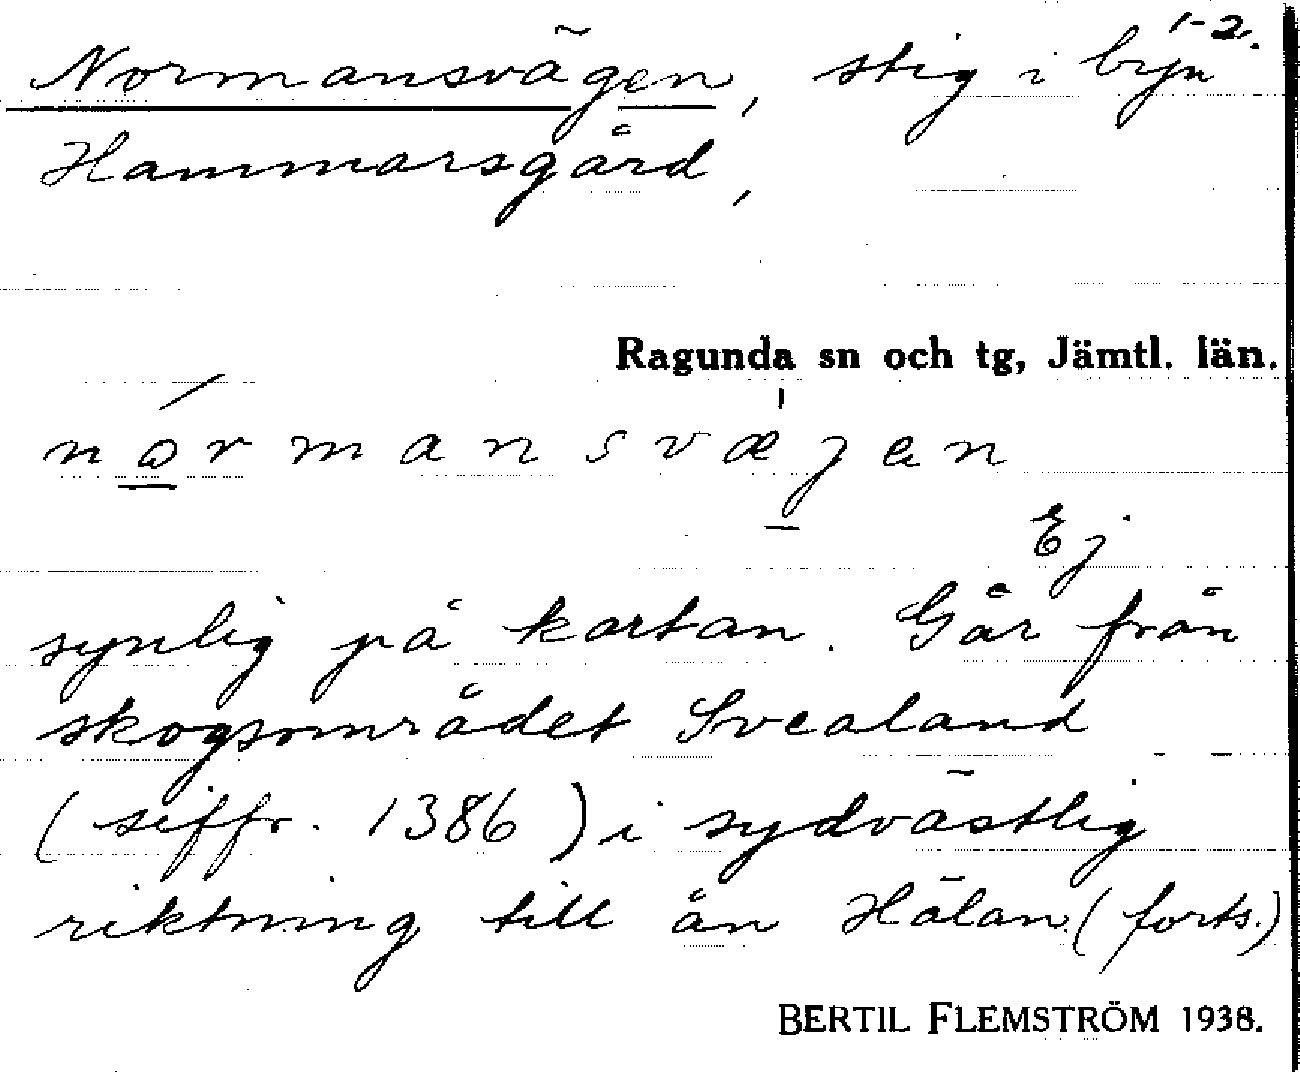 1-2.
Normansvägen, stig i byn
Hammarsgård,
Ragunda sn och tg, Jämtl. län.
nọrmansvæjen
Ej
synlig på kartan. Går från
skogsområdet Svealand
(siffr. 1386) i sydvästlig
riktning till ån Hälan (forts.)
BERTIL FLEMSTRÖM 1938.